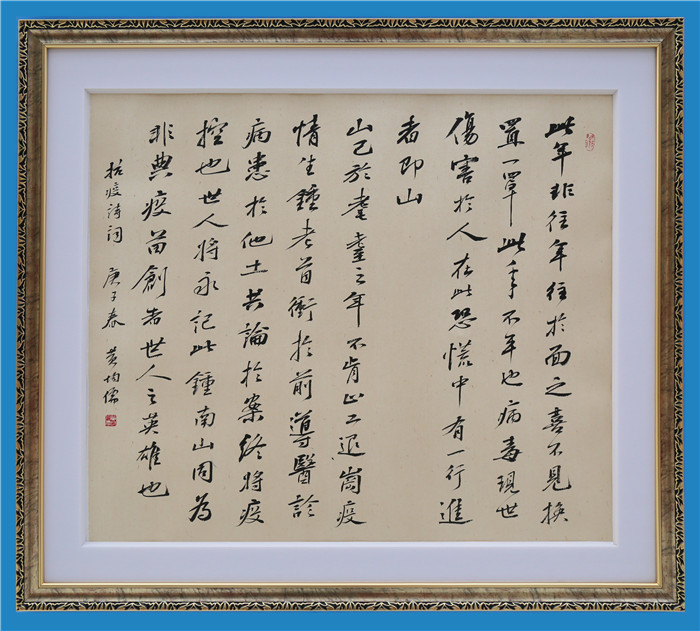 此年非往年往於面之喜不見換
置一罩此年不年也病毒現世
傷害於人在此恐慌中有一行進
者即山
山已於耄耋之年不肯止工退崗疫
情生鍾老首衝於前導醫診
病患於他土共論於案終將疫
控也世人將永記此鍾南山同為
非典疫苗創者世人之英雄也
抗疫詩詞 庚子春 黄均儒